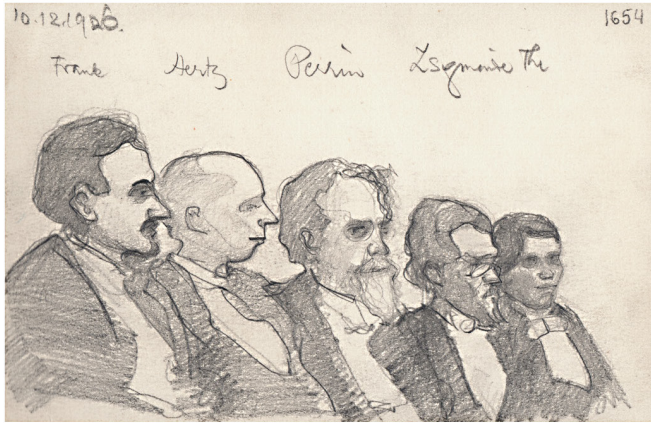 10.12.1926. 1654
Frank Hertz Perrin Zsigmondy The